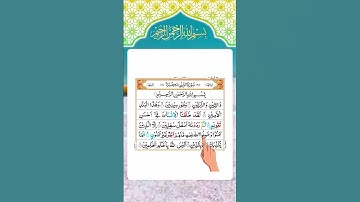 بِسْمِ اللهِ الرَّحْمٰنِ الرَّحِيْمِ
سُوْرَةُ التِّيْنِ
بِسْمِ اللهِ الرَّحْمٰنِ الرَّحِيْمِ
وَالتِّيْنِ وَالزَّيْتُوْنِ وَطُوْرِ سِيْنِيْنَ وَهٰذَا الْبَلَدِ
الْاَمِيْنِ لَقَدْ خَلَقْنَا الْاِنْسَانَ فِيْ اَحْسَنِ
تَقْوِيْمٍ ثُمَّ رَدَدْنٰهُ اَسْفَلَ سٰفِلِيْنَ اِلَّا الَّذِيْنَ
اٰمَنُوْا وَعَمِلُوا الصّٰلِحٰتِ فَلَهُمْ اَجْرٌ غَيْرُ
بِالدِّيْنِ اَلَيْسَ اللهُ بِاَحْكَمِ الْحٰكِمِيْنَ